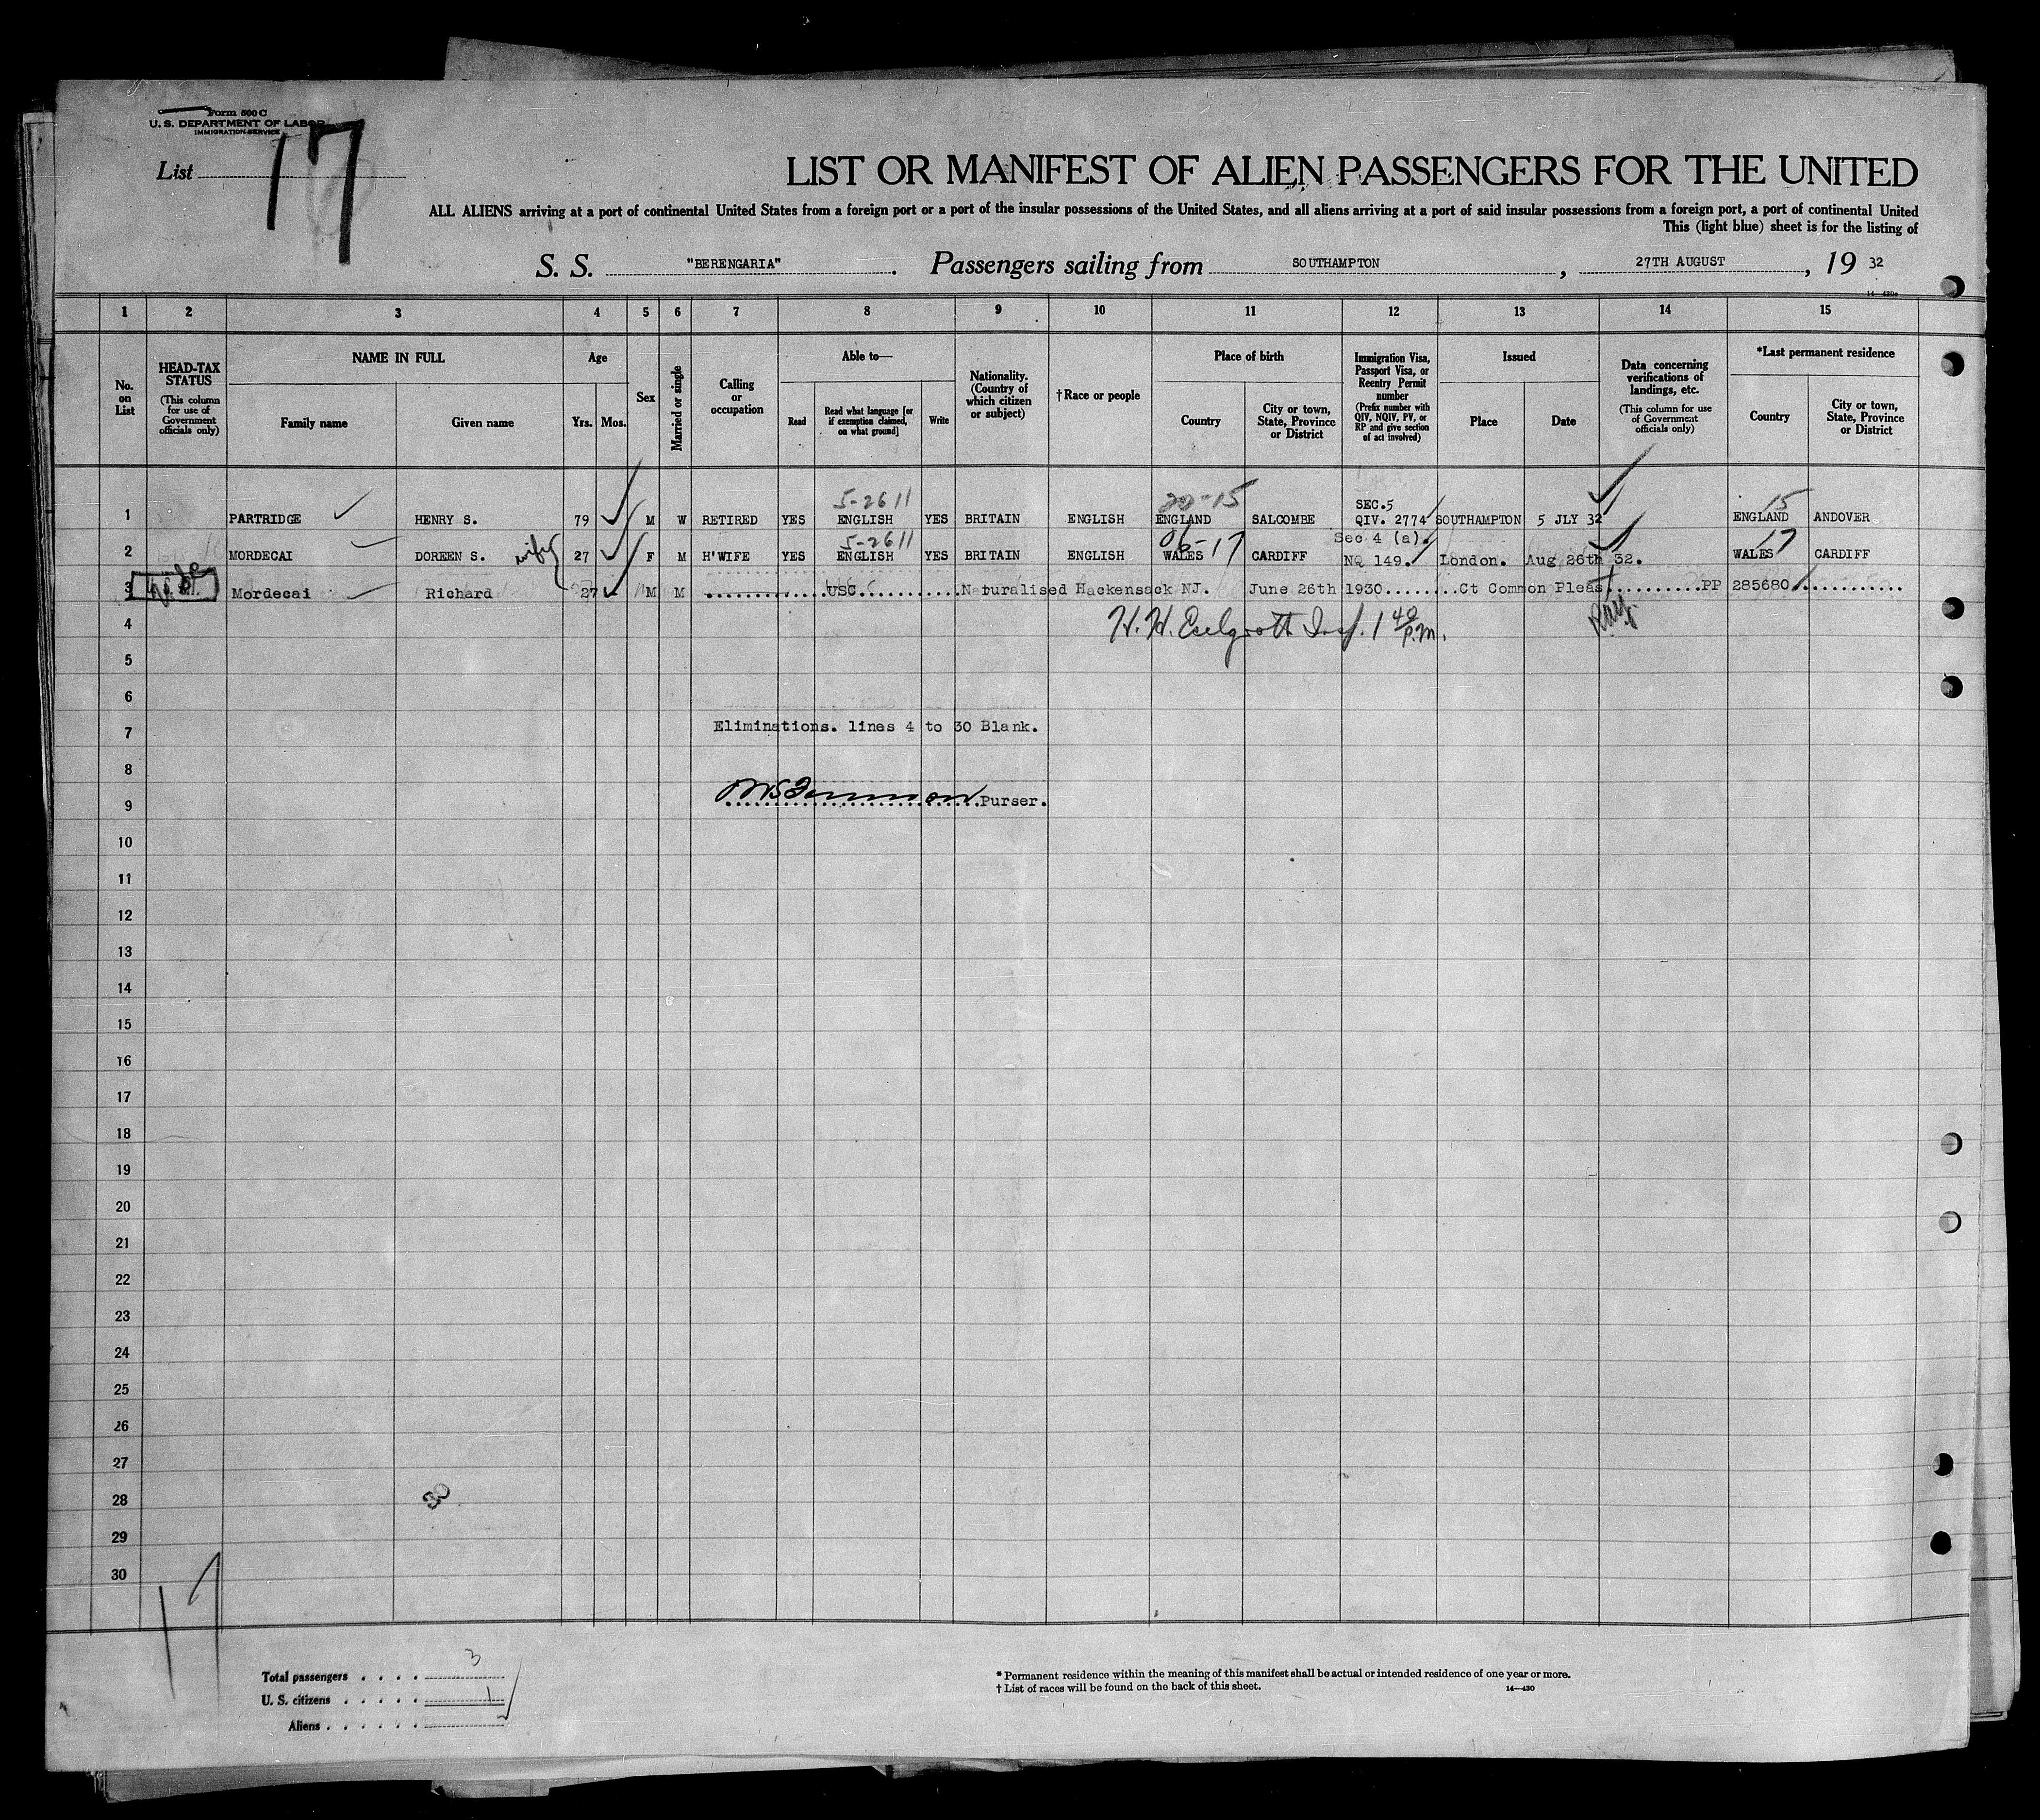 Form 500 C
U. S. DEPARTMENT OF LABOR
IMMIGRATION SERVICE
List 17
LIST OR MANIFEST OF ALIEN PASSENGERS FOR THE UNITED
ALL ALIENS arriving at a port of continental United States from a foreign port or a port of the insular possessions of the United States, and all aliens arriving at a port of said insular possessions from a foreign port, a port of continental United
This (light blue) sheet is for the listing of
S. S. "BERENGARIA". Passengers sailing from SOUTHAMPTON, 27TH AUGUST, 19 32
1 2 3 4 5 6 7 8 9 10 11 12 13 14 15
No. on List
HEAD-TAX STATUS (This column for use of Government officials only)
NAME IN FULL
Family name Given name
Age
Yrs. Mos.
Sex
Married or single
Calling or occupation
Able to—
Read Read what language [or if exemption claimed, on what ground] Write
Nationality. (Country of which citizen or subject)
†Race or people
Place of birth
Country City or town, State, Province or District
Immigration Visa, Passport Visa, or Reentry Permit number (Prefix number with QIV, NQIV, PV, or RP and give section of act involved)
Issued
Place Date
Data concerning verifications of landings, etc. (This column for use of Government officials only)
*Last permanent residence
Country City or town, State, Province or District
5-2611 20-15 SEC.5 15
1 PARTRIDGE HENRY S. 79 M W RETIRED YES ENGLISH YES BRITAIN ENGLISH ENGLAND SALCOMBE QIV. 2774 SOUTHAMPTON 5 JLY 32 ENGLAND ANDOVER
5-2611 06-17 Sec 4 (a). 17
2 MORDECAI DOREEN S. wife 27 F M H'WIFE YES ENGLISH YES BRITAIN ENGLISH WALES CARDIFF NQ 149. London. Aug 26th 32. WALES CARDIFF
3 Mordecai Richard 27 M M ............USC..........Naturalised Hackensack NJ. June 26th 1930........Ct Common Pleas...........PP 285680............
4 H. H. Insp. 1 40 P.M.
5
6
7 Eliminations. lines 4 to 30 Blank.
8
9 Purser.
10
11
12
13
14
15
16
17
18
19
20
21
22
23
24
25
26
27
28 30
29
30
17
Total passengers . . . . 3
U. S. citizens . . . . . 1
Aliens . . . . . .
* Permanent residence within the meaning of this manifest shall be actual or intended residence of one year or more.
† List of races will be found on the back of this sheet. 14—430